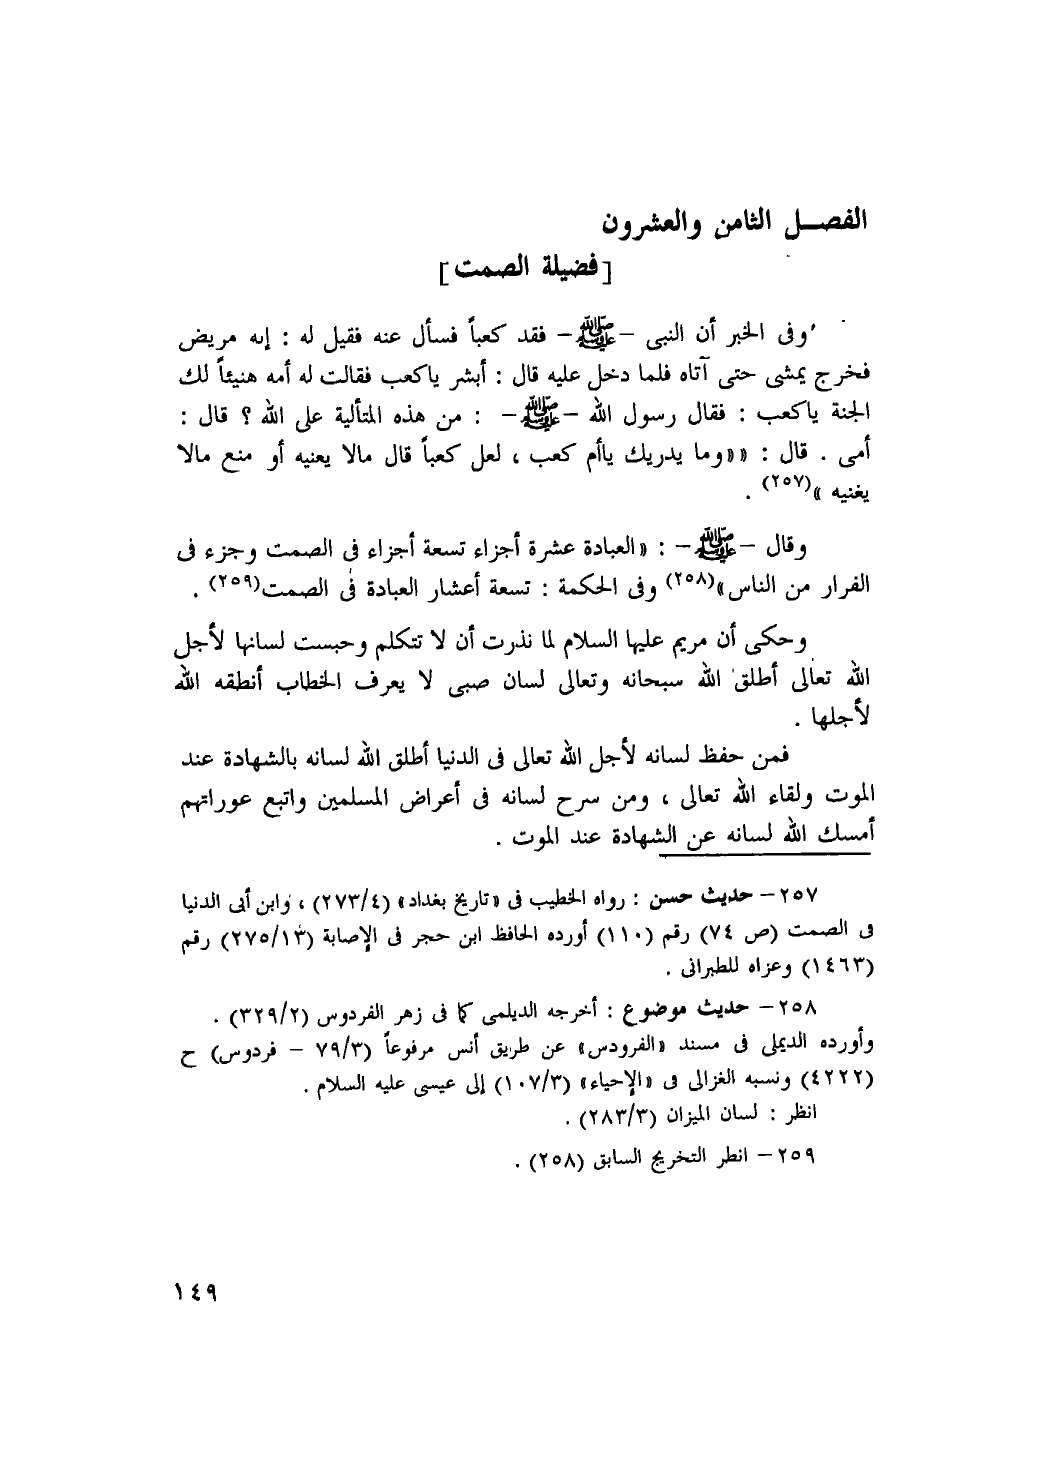 الفصـــل الثامن والعشرون
[ فضيلة الصمت ]
وفى الخبر أن النبى – ﷺ – فقد كعباً فسأل عنه فقيل له : إنه مريض
فخرج يمشى حتى آتاه فلما دخل عليه قال : أبشر ياكعب فقالت له أمه هنيئاً لك
الجنة ياكعب : فقال رسول الله – ﷺ – : من هذه المتألية على الله ؟ قال :
أمى . قال : ««وما يدريك ياأم كعب ، لعل كعباً قال مالا يعنيه أو منع مالا
يغنيه »(٢٥٧) .
وقال – ﷺ – : «العبادة عشرة أجزاء تسعة أجزاء فى الصمت وجزء فى
الفرار من الناس»(٢٥٨) وفى الحكمة : تسعة أعشار العبادة فى الصمت(٢٥٩) .
وحكى أن مريم عليها السلام لما نذرت أن لا تتكلم وحبست لسانها لأجل
الله تعالى أطلق الله سبحانه وتعالى لسان صبى لا يعرف الخطاب أنطقه الله
لأجلها .
فمن حفظ لسانه لأجل الله تعالى فى الدنيا أطلق الله لسانه بالشهادة عند
الموت ولقاء الله تعالى ، ومن سرح لسانه فى أعراض المسلمين واتبع عوراتهم
أمسك الله لسانه عن الشهادة عند الموت .
٢٥٧ – حديث حسن : رواه الخطيب فى «تاريخ بغداد» (٢٧٣/٤) ، وابن أبى الدنيا
فى الصمت (ص ٧٤) رقم (١١٠) أورده الحافظ ابن حجر فى الإصابة (٢٧٥/١٣) رقم
(١٤٦٣) وعزاه للطبرانى .
٢٥٨ – حديث موضوع : أخرجه الديلمى كما فى زهر الفردوس (٣٢٩/٢) .
وأورده الديملى فى مسند «الفرودس» عن طريق أنس مرفوعاً (٧٩/٣ – فردوس) ح
(٤٢٢٢) ونسبه الغزالى فى «الإحياء» (١٠٧/٣) إلى عيسى عليه السلام .
انظر : لسان الميزان (٢٨٣/٣) .
٢٥٩ – انطر التخريج السابق (٢٥٨) .
١٤٩